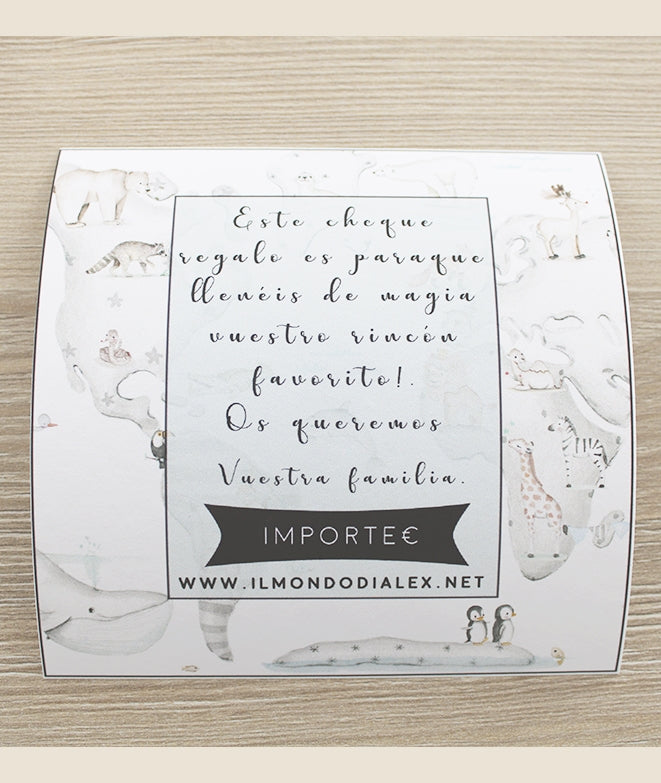 Este cheque
regalo es paraque
llenéis de magia
vuestro rincón
favorito!.
Os queremos
Vuestra familia.
IMPORTE€
WWW.ILMONDODIALEX.NET